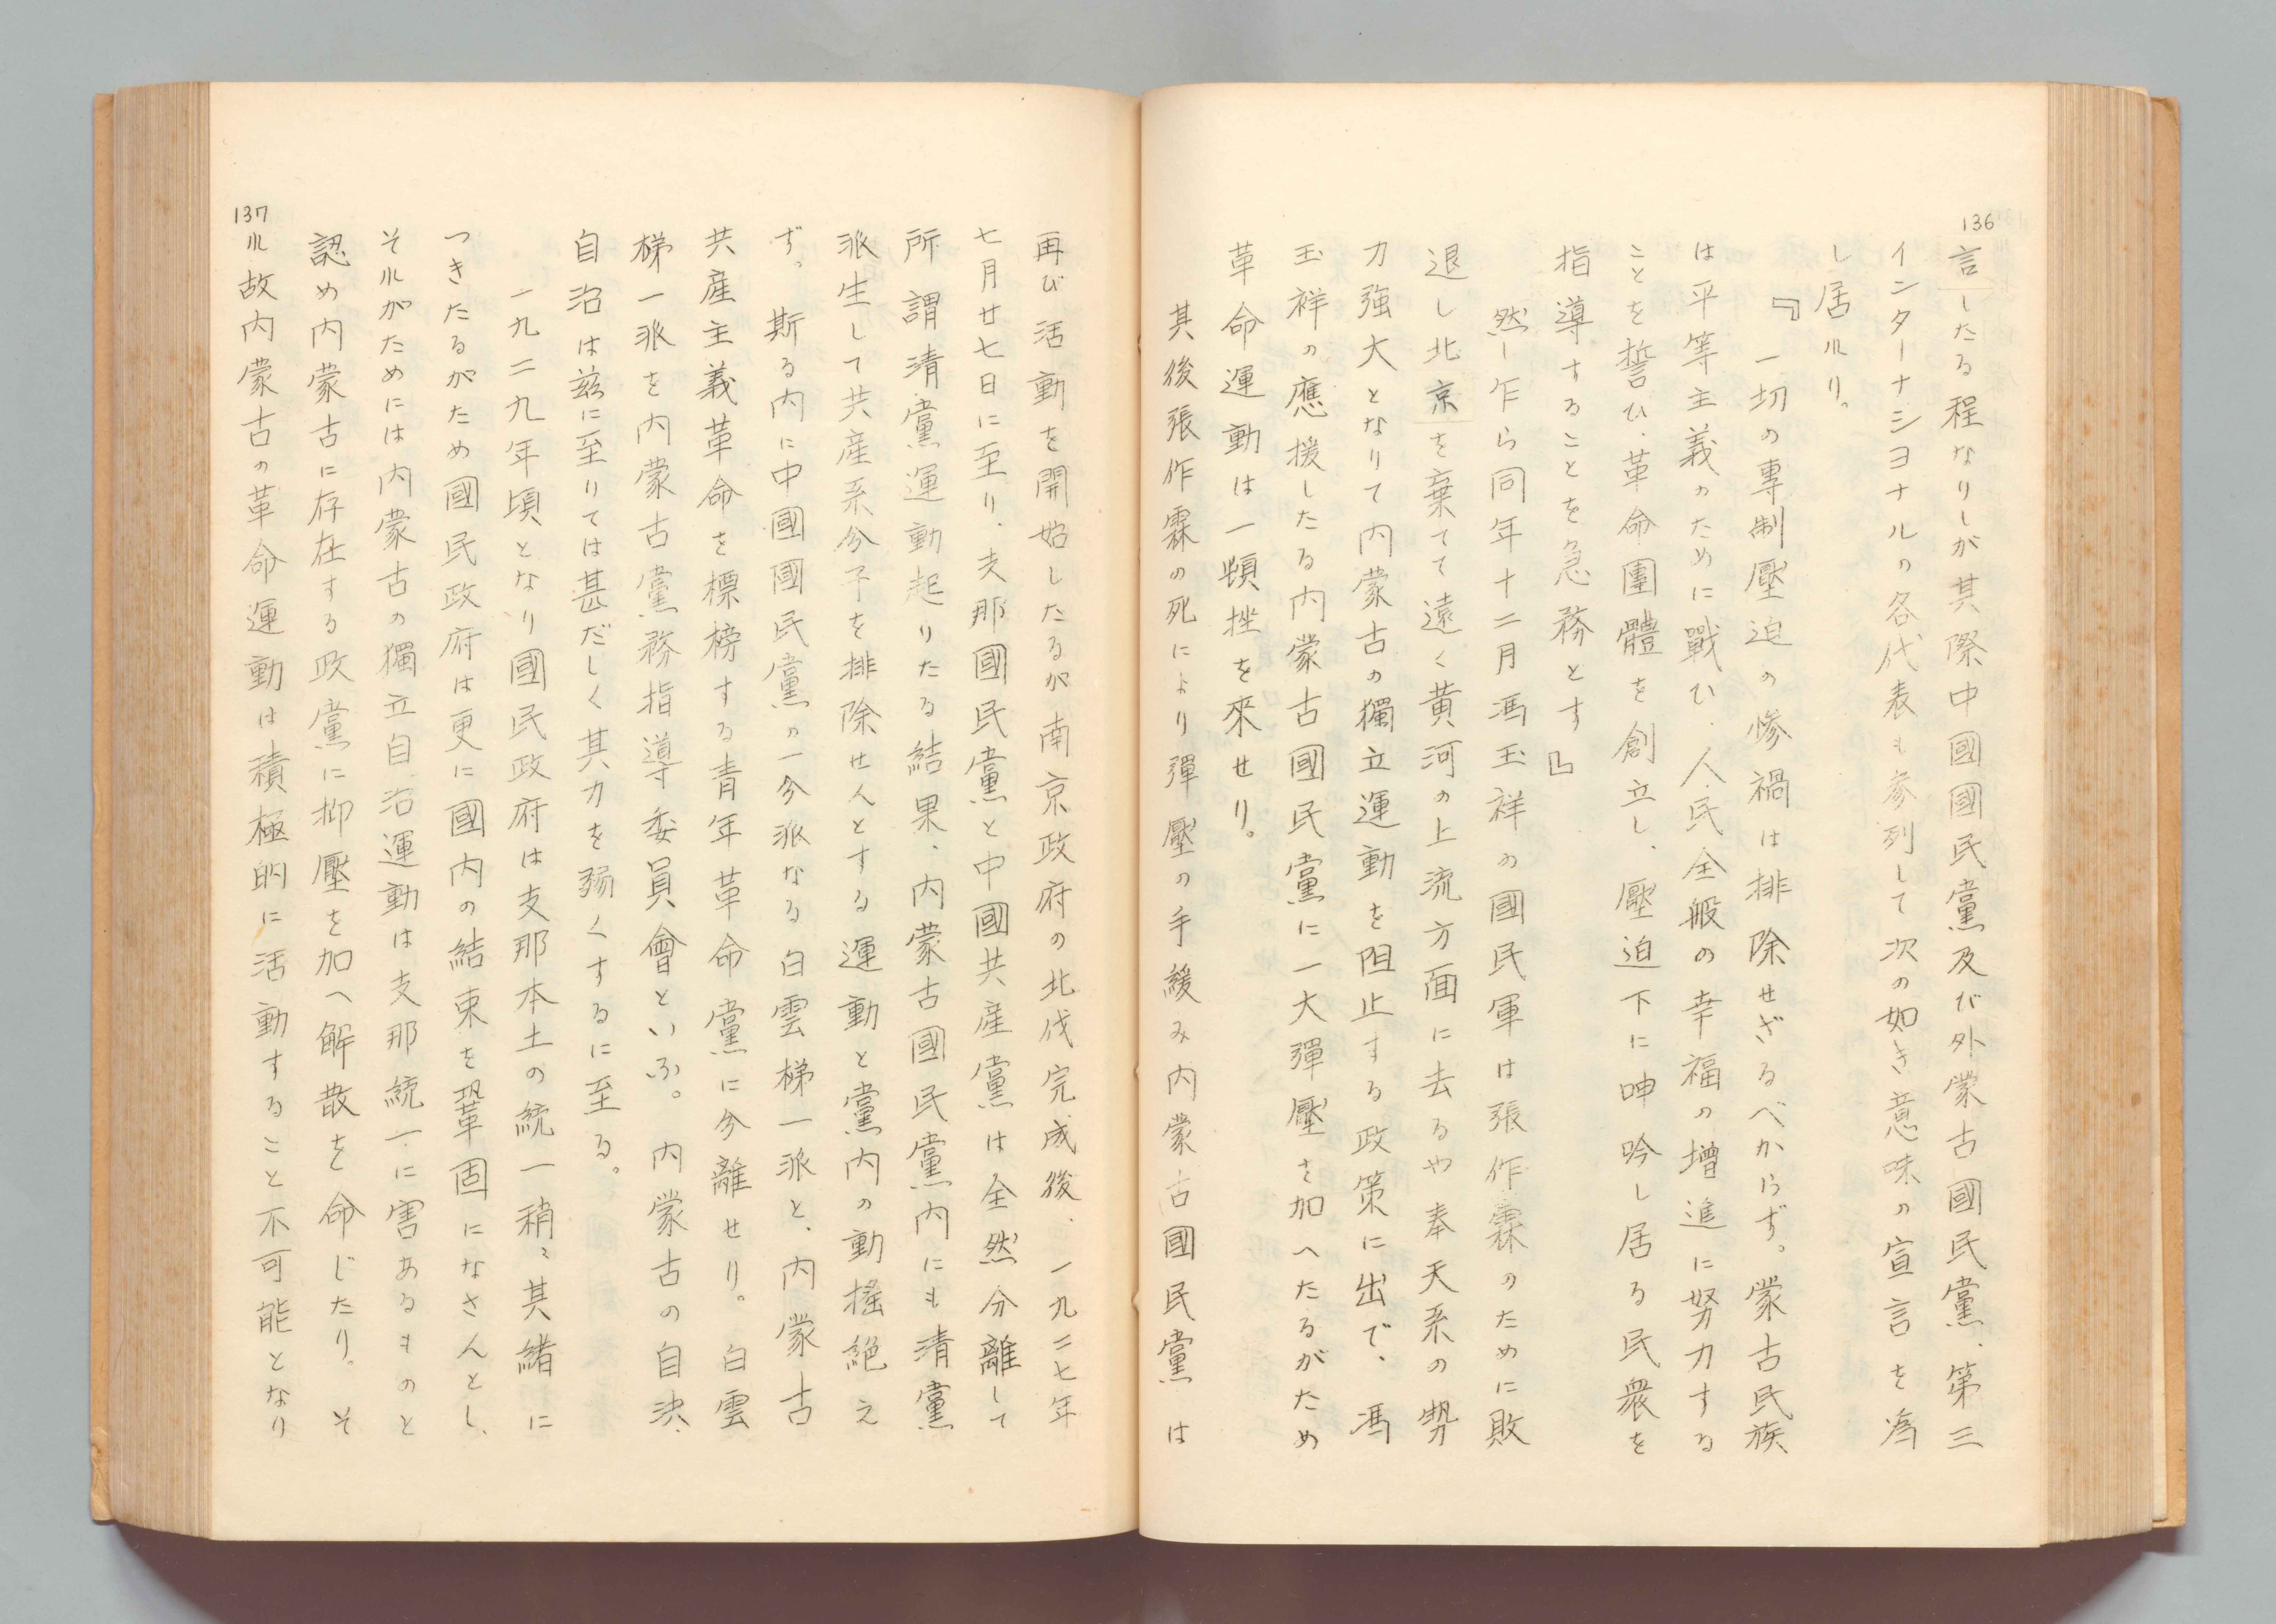 136
言したる程なりしが其際中國國民黨及び外蒙古國民黨、第三
インターナシヨナルの各代表も参列して次の如き意味の宣言を為
し居れり。
『一切の專制壓迫の惨禍は排除せざるべからず。蒙古民族
は平等主義のために戰ひ、人民全般の幸福の増進に努力する
ことを誓ひ、革命團體を創立し、壓迫下に呻吟し居る民衆を
指導することを急務とす』
然し乍ら同年十二月馮玉祥の國民軍は張作霖のために敗
退し北京を棄てて遠く黄河の上流方面に去るや奉天系の勢
力強大となりて内蒙古の獨立運動を阻止する政策に出で、馮
玉祥の應援したる内蒙古國民黨に一大彈壓を加へたるがため
革命運動は一頓挫を來せり。
其後張作霖の死により彈壓の手緩み内蒙古國民黨は
再び活動を開始したるが南京政府の北伐完成後、一九二七年
七月廿七日に至り、支那國民黨と中國共産黨は全然分離して
所謂清黨運動起りたる結果、内蒙古國民黨内にも清黨
派生して共産系分子を排除せんとする運動と黨内の動揺絶え
ず。斯る内に中國國民黨の一分派なる白雲梯一派と、内蒙古
共産主義革命を標榜する青年革命黨に分離せり。白雲
梯一派を内蒙古黨務指導委員會といふ。内蒙古の自決、
自治は茲に至りては甚だしく其力を弱くするに至る。
一九二九年頃となり國民政府は支那本土の統一稍〻其緒に
つきたるがため國民政府は更に國内の結束を鞏固になさんとし、
それがためには内蒙古の獨立自治運動は支那統一に害あるものと
認め内蒙古に存在する政黨に抑壓を加へ解散を命じたり。そ
137
れ故内蒙古の革命運動は積極的に活動すること不可能となり